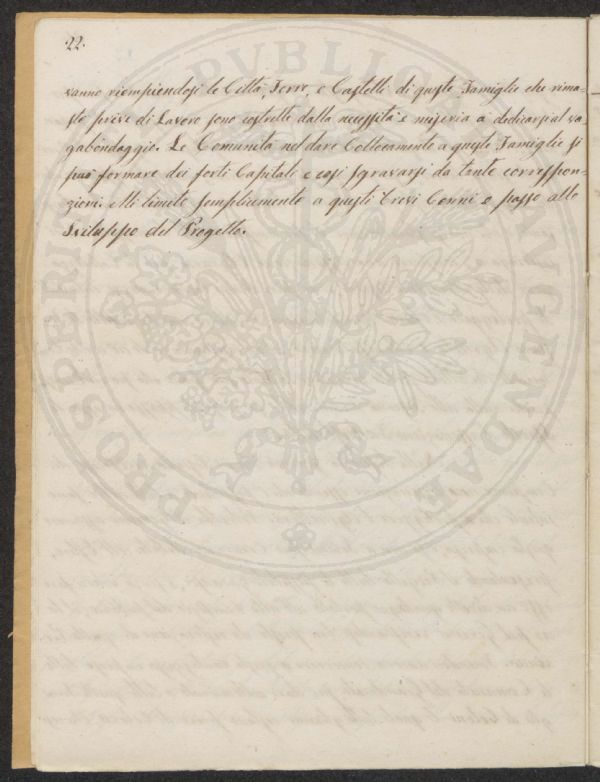 22.
vanno riempiendosi le Città, Terre, e Castelli di queste Famiglie che rima-
ste prive di Lavoro sono costrette dalla necessità e miseria a dedicarsi al va
gabondaggio. Le Comunità nel dare Collocamento a queste Famiglie si
può formare dei forti Capitali e così sgravarsi da tante correspon-
zioni. Mi limito semplicemente a questi brevi Cenni e passo allo
Sviluppo del Progetto.
PVBLICAE
AVGENDAE
PROSPERI